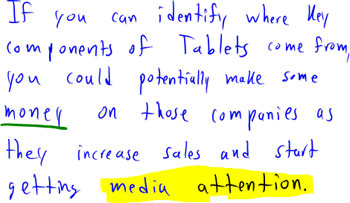 If you can identify where key
components of Tablets come from,
you could potentially make some
money on those companies as
they increase sales and start
getting media attention.